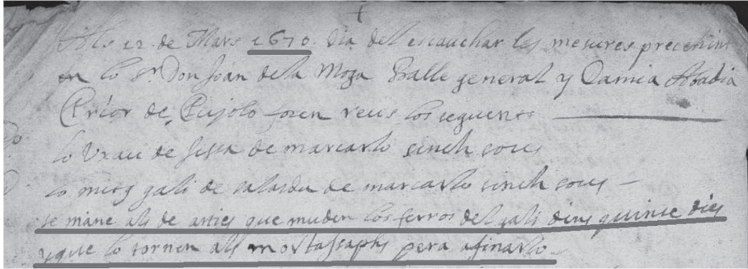 Als 12 de Mars 1670 dia del escauchar les mesures precenint
en lo Sr Don Joan de la Moga Balle general y Damia Abadia
Prior de Pujolo foren reus los seguents
lo de Gessa de marcarlo sinch sous
lo mitg gali de salardu de marcarlo sinch sous
se mane als de arties que muden los ferros del gali dins quinse dies
y que lo tornen als mostassaphs pera afinarlo